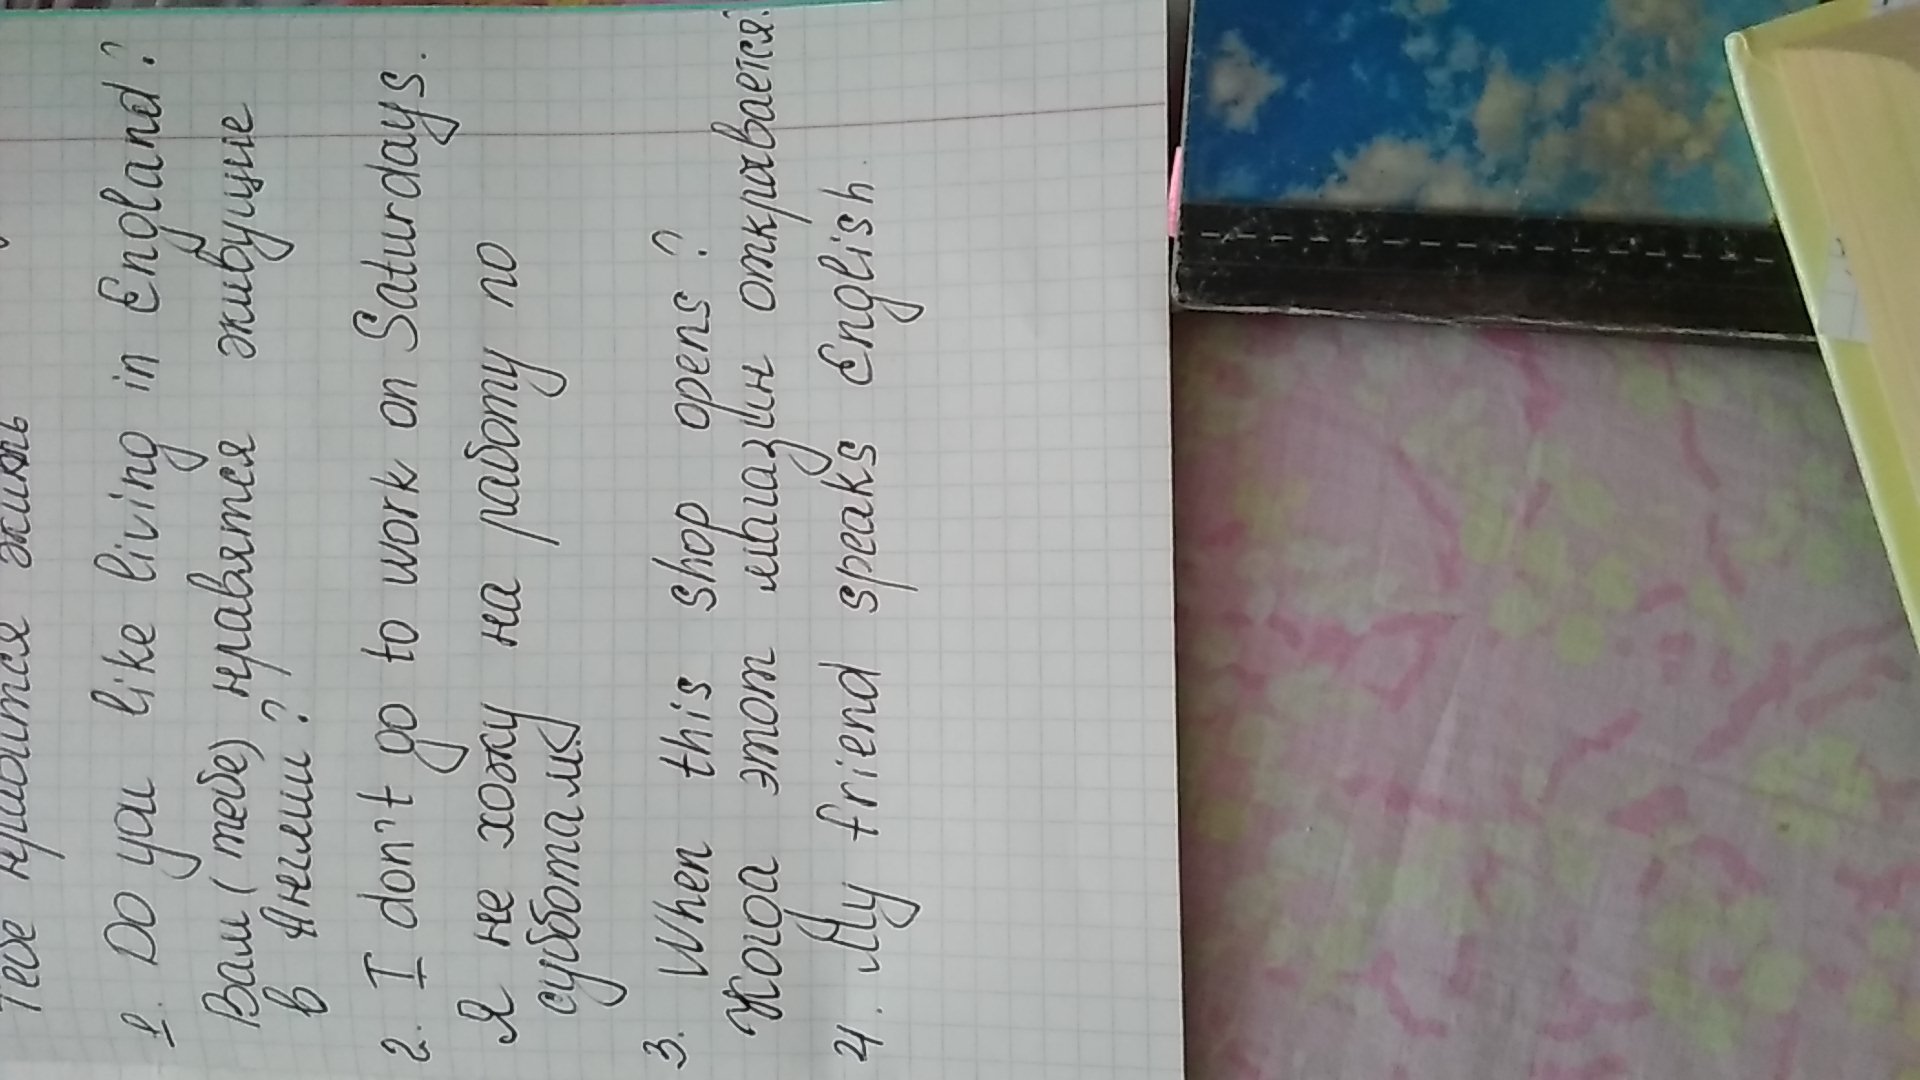 Тебе нравится жить
1. Do you like living in England?
Вам (тебе) нравятся живущие
в Англии?
2. I don't go to work on Saturdays.
Я не хожу на работу по
субботам.
3. When this shop opens?
Когда этот магазин открывается?
4. My friend speaks English